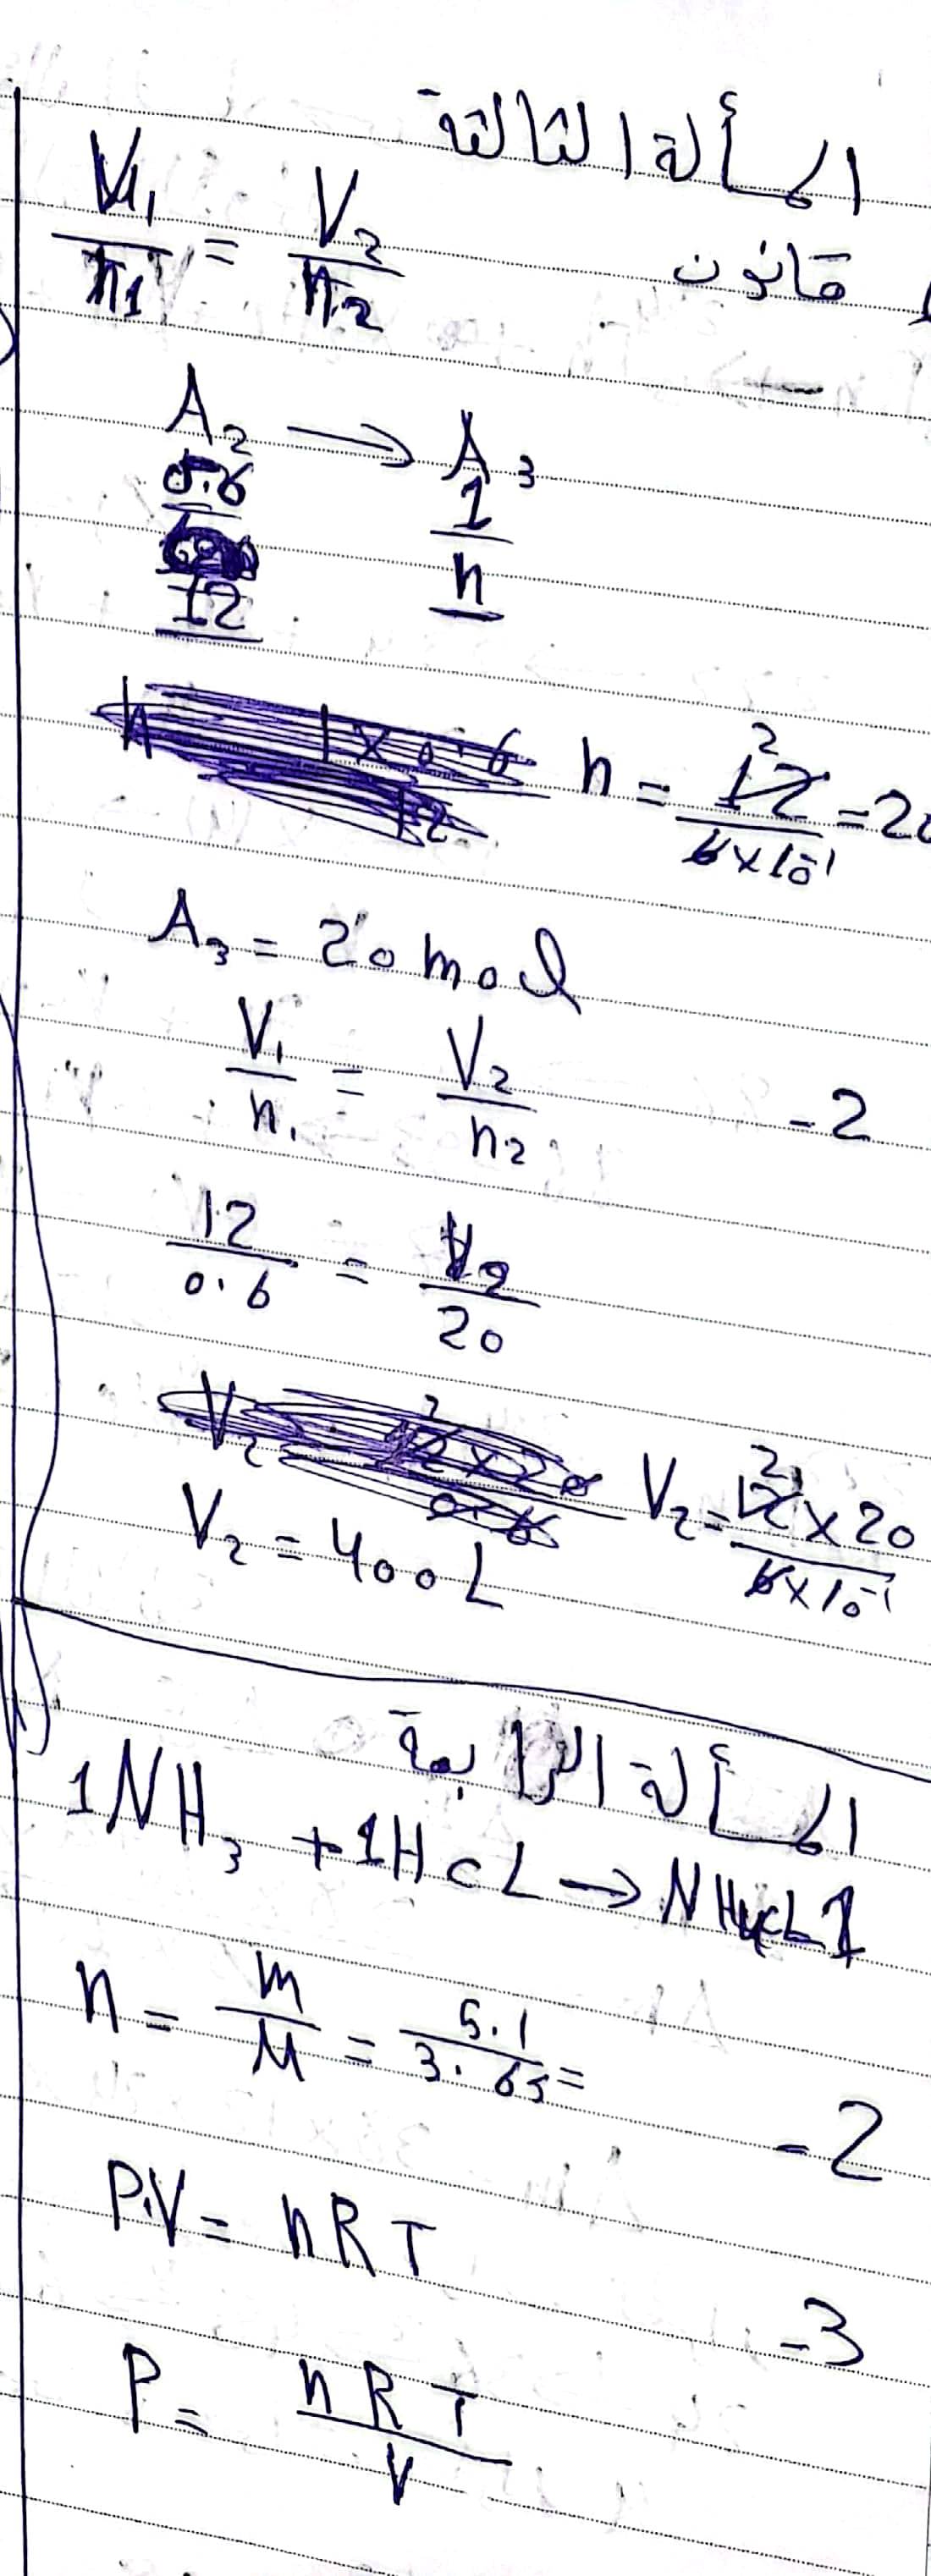 المسألة الثالثة
V₁/n₁ = V₂/n₂ قانون
A₂ → A₃
0.6 1
12 n
n = 12/6×10⁻¹ = 20
A₃ = 20 mol
V₁/n₁ = V₂/n₂ -2
12/0.6 = V₂/20
V₂ = 12×20/6×10⁻¹
V₂ = 400 L
المسألة الرابعة
1NH₃ + 1HCL → NH₄CL 1
n = m/M = 5.1/3.65 =
-2
P.V = nRT
-3
P = nRT/V